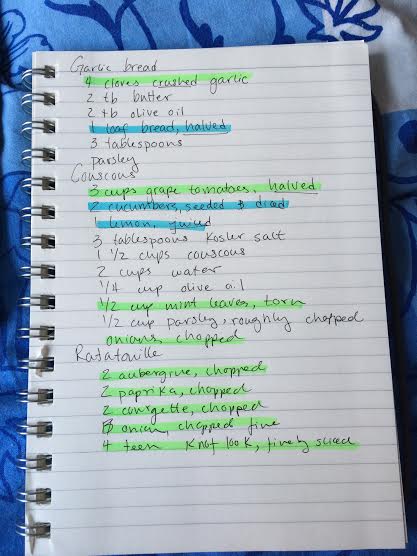 Garlic bread
4 cloves crushed garlic
2 tb butter
2 tb olive oil
1 loaf bread, halved
3 tablespoons
parsley
Couscous
3 cups grape tomatoes, halved
2 cucumbers, seeded & diced
1 lemon, juiced
3 tablespoons Kosher salt
1 1/2 cups couscous
2 cups water
1/4 cup olive oil
1/2 cup mint leaves, torn
1/2 cup parsley, roughly chopped
onions, chopped
Ratatouille
2 aubergine, chopped
2 paprika, chopped
2 courgette, chopped
onion, chopped fine
4 teen knoflook, finely sliced